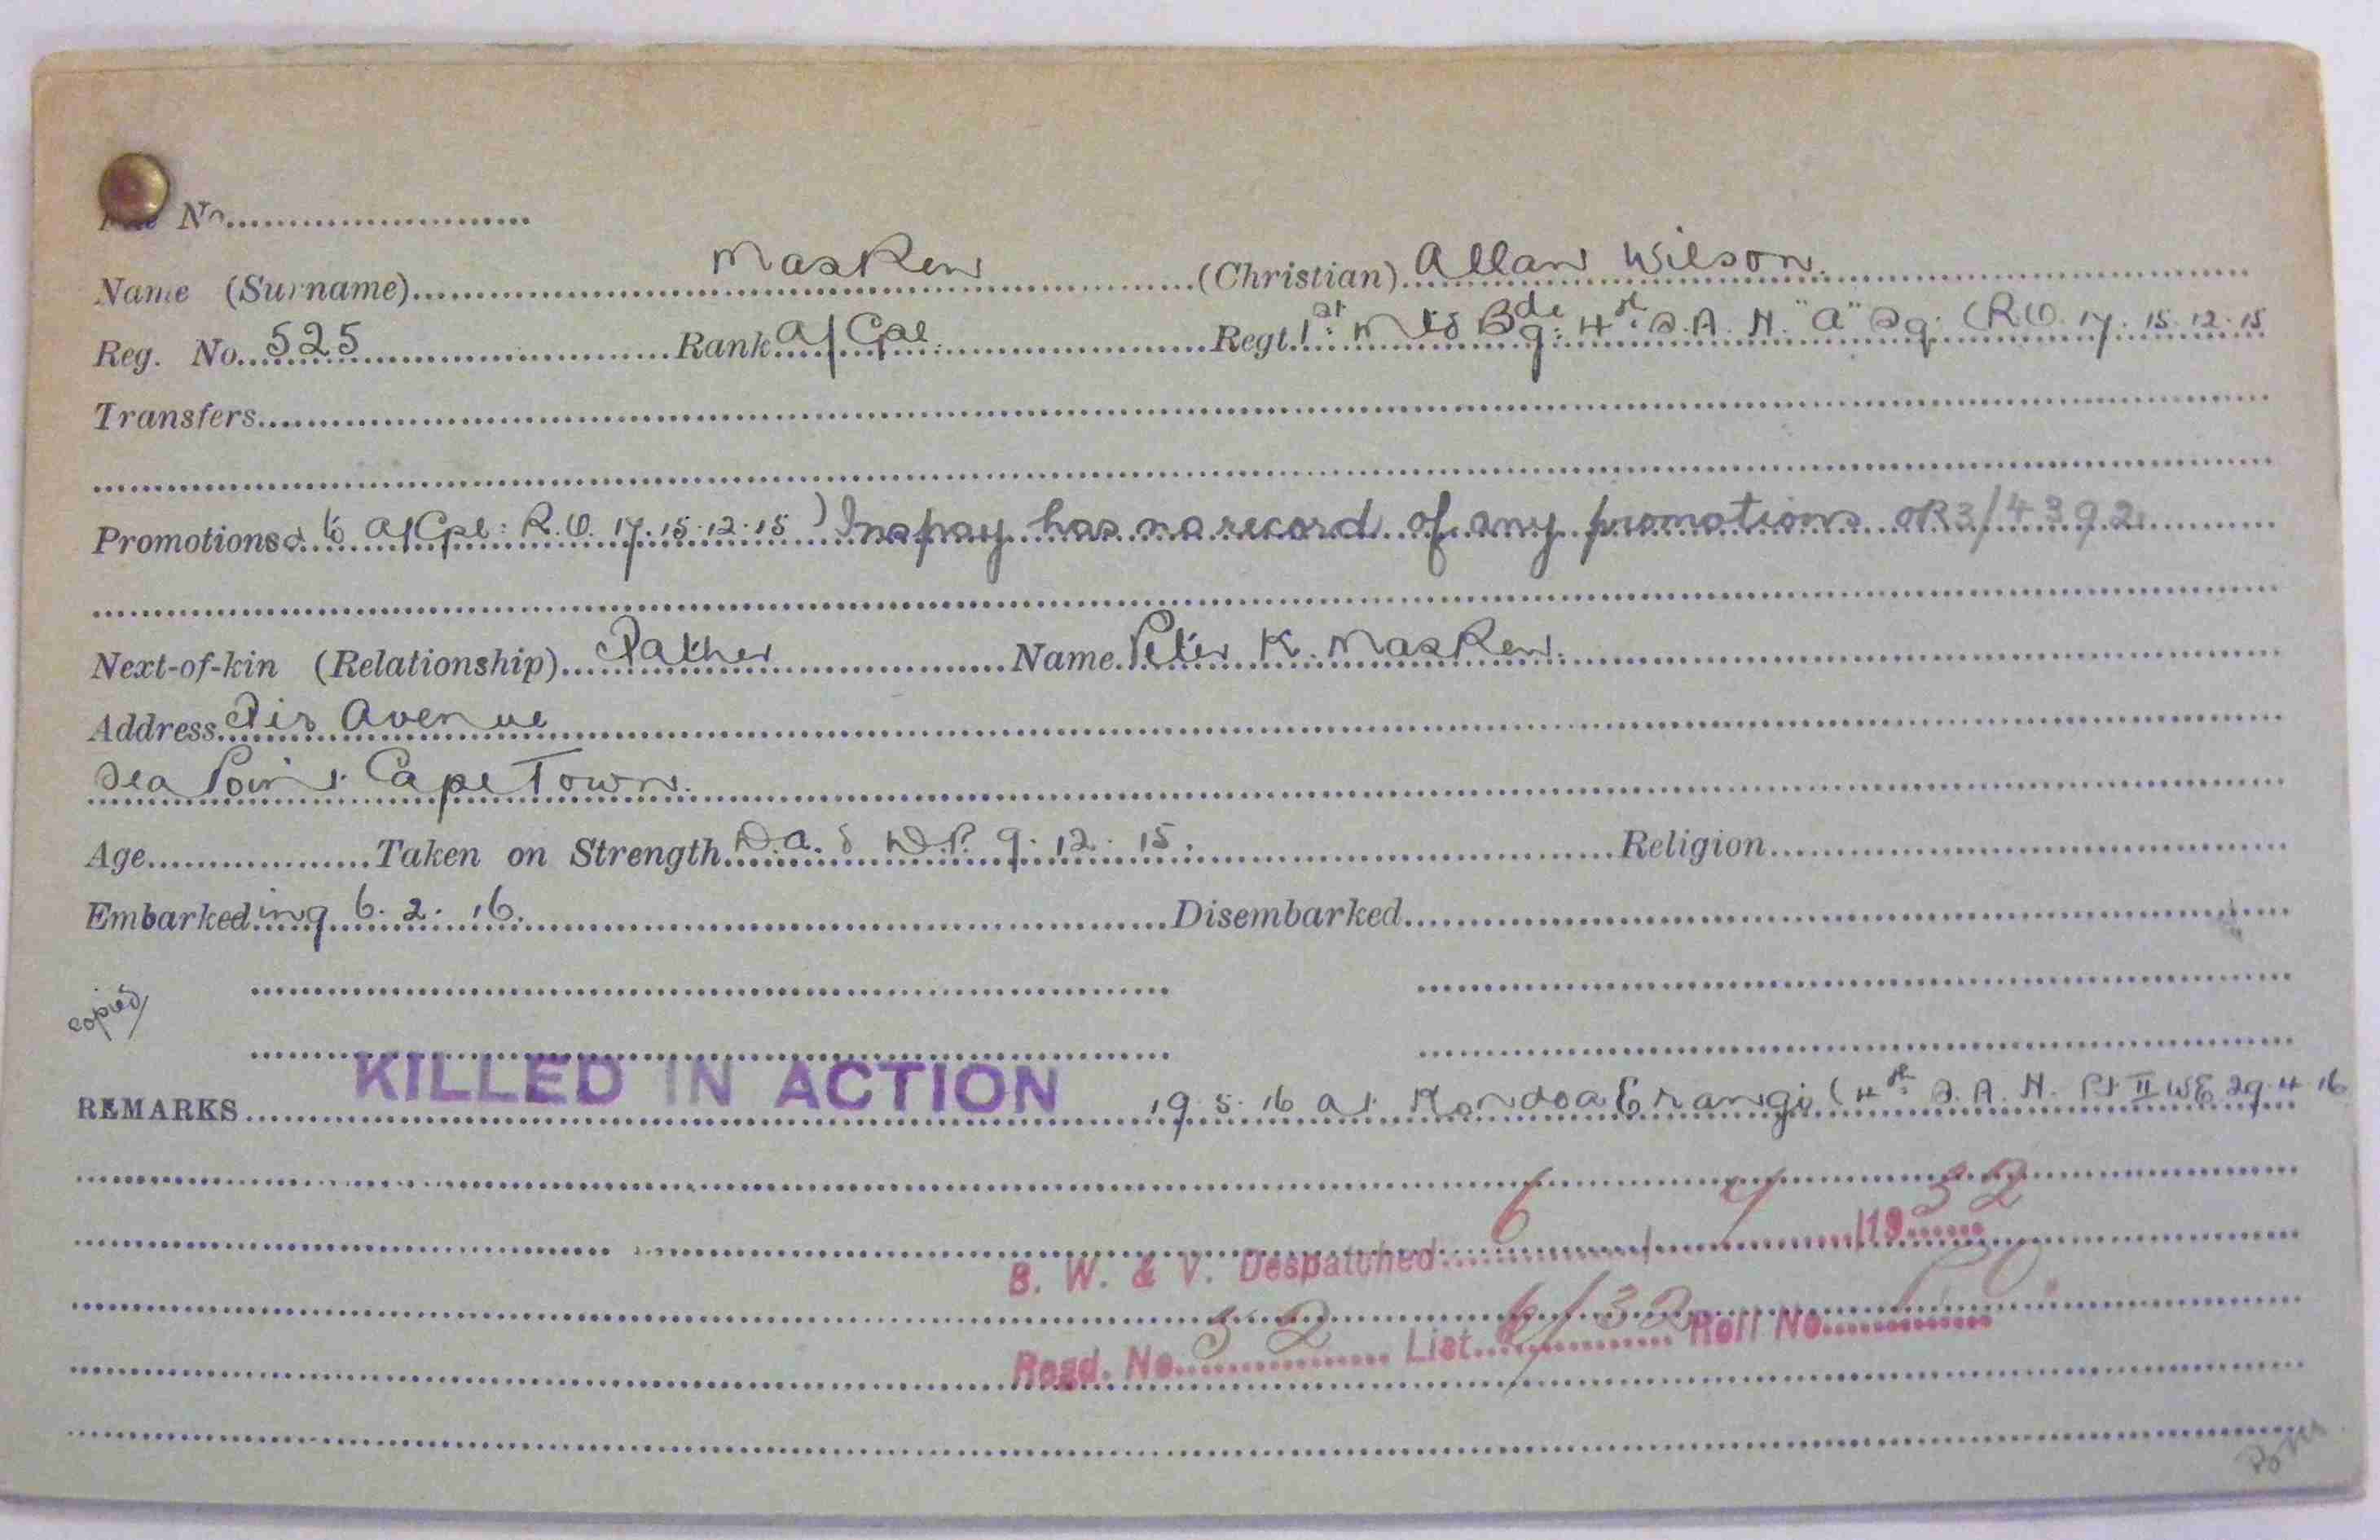 No
Name (Surname) Masken (Christian) Allan Wilson.
Reg. No. 525 Rank A/Cpl. Regt. 1st Mtd Bde: 4th S.A.H. "A" Sq. (R.O. 17. 15.12.15
Transfers
Promotions to A/Cpl: R.O. 17. 15.12.15) Inspay has no record of any promotions OR3/4392
Next-of-kin (Relationship) Father Name Peter K. Masken.
Address Fir Avenue
Sea Point Cape Town.
Age Taken on Strength D.A. & W.P. 9.12.15. Religion
Embarking 6.2.16. Disembarked
copied
REMARKS KILLED IN ACTION 19.5.16 at Kondoa Erangi (4th S.A.H. Pt II WE 29.4.16
B. W. & V. Despatched 6/7/1932
Regd. No. 52 List 6/32 Roll No.